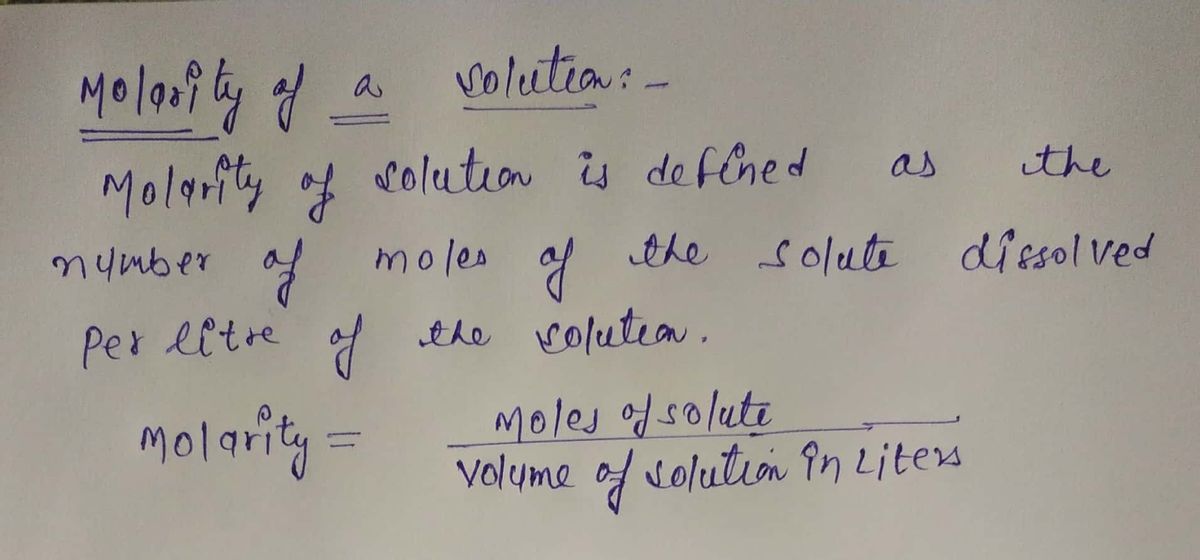 Molarity of a solution:-
Molarity of solution is defined as the
number of moles of the solute dissolved
Per litre of the solution.
Molarity = Moles of solute
Volume of solution in Liters